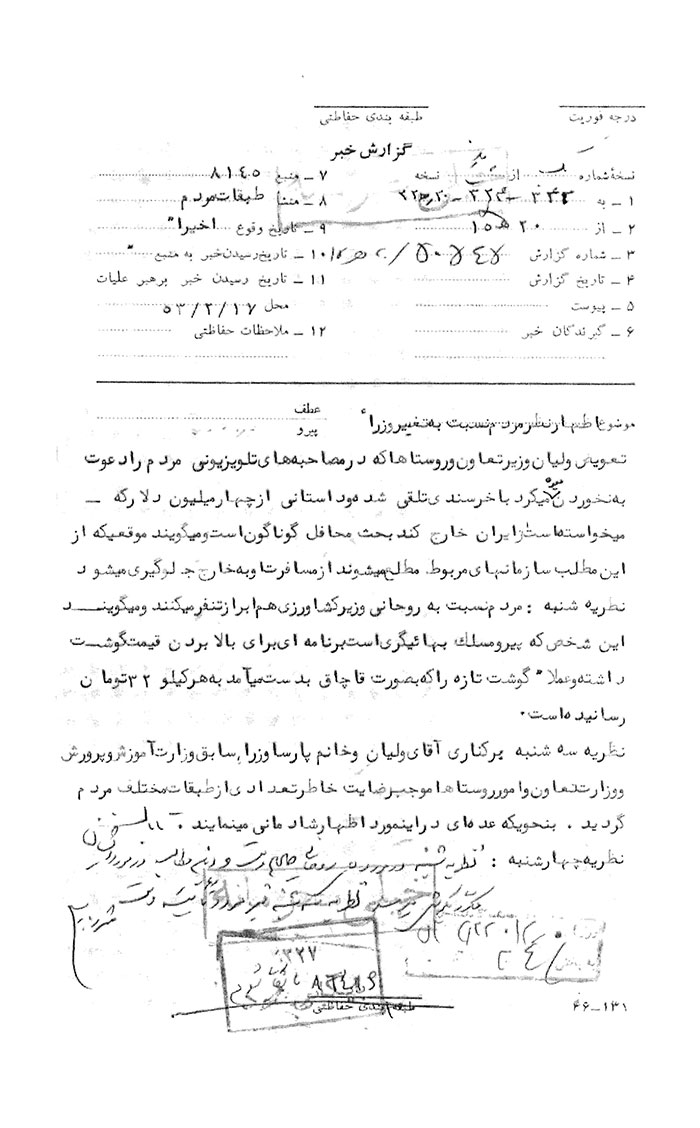 درجه فوریت
طبقه بندی حفاظتی
گزارش خبر
نسخهٔ شماره از نسخه
۱ ـ به ۳۴۳ ـ ۳۲۴ ـ
۲ ـ از ۲۰ ﻫ ۱۵
۳ ـ شماره گزارش
۴ ـ تاریخ گزارش
۵ ـ پیوست
۶ ـ گیرندگان خبر
۷ ـ منبع ۸۱۴۵
۸ ـ منشا طبقات مردم
۹ ـ تاریخ وقوع اخیرا"
۱۰ ـ تاریخ رسیدن خبر به منبع "
۱۱ ـ تاریخ رسیدن خبر برهبر عملیات
محل ۵۳/۲/۱۷
۱۲ ـ ملاحظات حفاظتی
موضوع اظهار نظر مردم نسبت به تغییر وزرا
عطف
پیرو
تعویض ولیان وزیر تعاون و روستاها که در مصاحبه‌های تلویزیونی مردم را دعوت
به نخوردن میوه میکرد با خرسندی تلقی شده و داستانی از چهار میلیون دلار که ـ
میخواسته است از ایران خارج کند بحث محافل گوناگون است و میگویند موقعیکه از
این مطلب سازمانهای مربوط مطلع میشوند از مسافرت او به خارج جلوگیری میشود
نظریه شنبه : مردم نسبت به روحانی وزیر کشاورزی هم ابراز تنفر میکنند و میگویند
این شخص که پیرو مسلک بهائیگری است برنامه ای برای بالا بردن قیمت گوشت
داشته و عملا" گوشت تازه را که بصورت قاچاق بدست میآمد به هر کیلو ۳۲ تومان
رسانیده است.
نظریه سه شنبه برکناری آقای ولیان و خانم پارسا وزرا سابق وزارت آموزش و پرورش
و وزارت تعاون و امور روستاها موجب رضایت خاطر تعدادی از طبقات مختلف مردم
گردید . بنحویکه عده ای در اینمورد اظهار شادمانی مینمایند .
نظریه چهارشنبه : نظریه شنبه در مورد روحانی
نظریه سه شنبه
۳۳۷
طبقه بندی حفاظتی
۴۶-۱۳۱